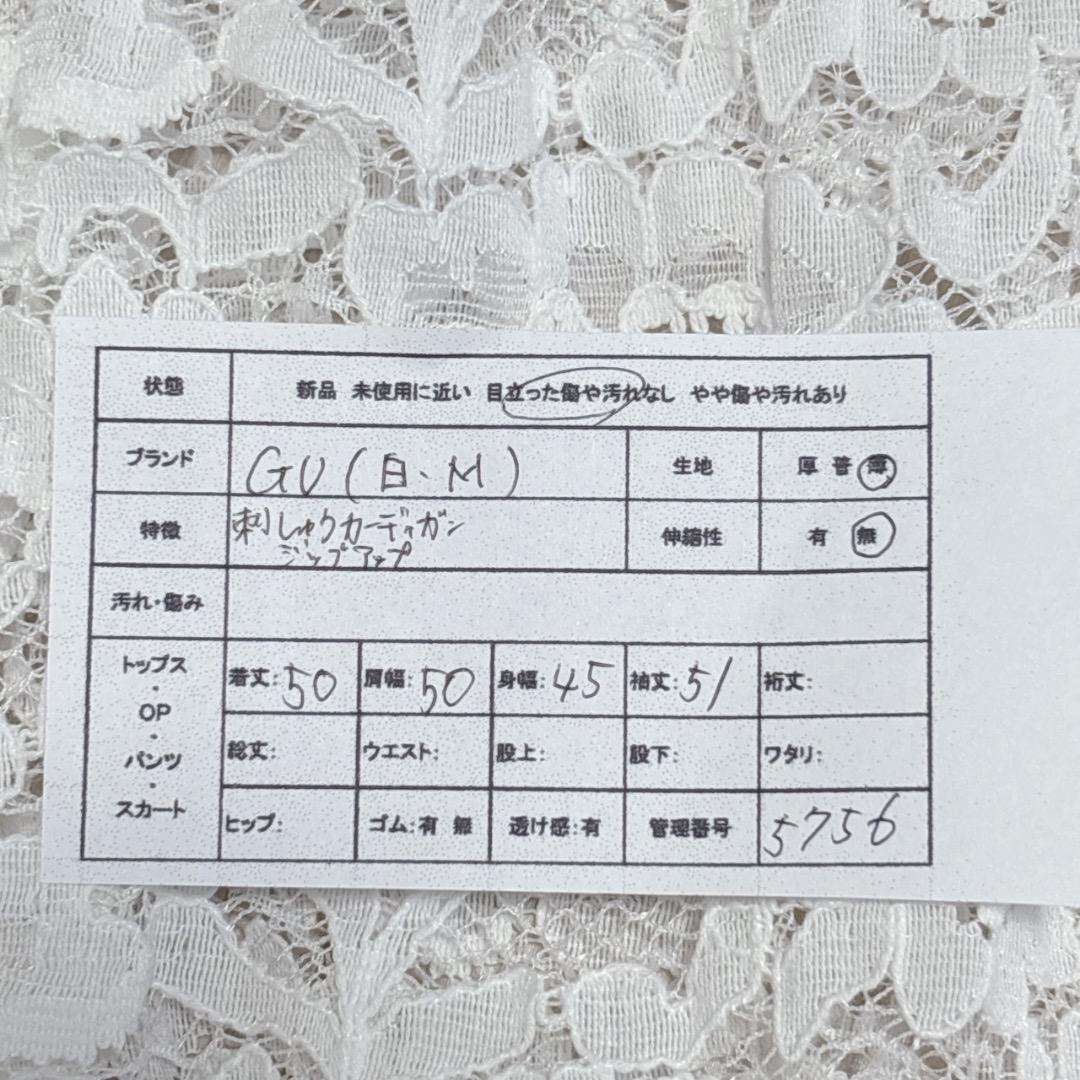 状態 新品 未使用に近い 目立った傷や汚れなし やや傷や汚れあり
ブランド GU(白、M) 生地 厚 普 薄
特徴 刺しゅうカーディガン 伸縮性 有 無
ジップアップ
汚れ・傷み
トップス 着丈:50 肩幅:50 身幅:45 袖丈:51 裄丈:
・
OP
・
パンツ 総丈: ウエスト: 股上: 股下: ワタリ:
・
スカート ヒップ: ゴム:有 無 透け感:有 管理番号 5756